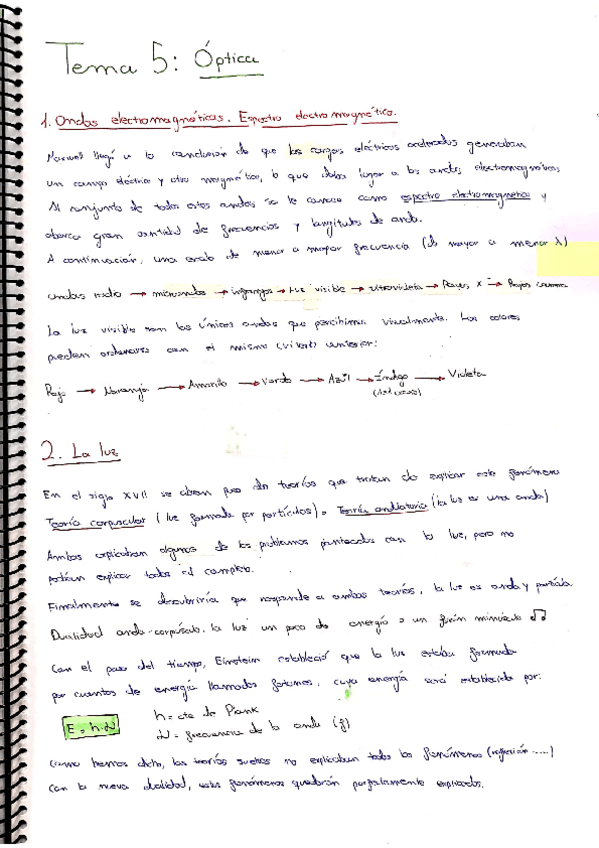 Tema 5: Óptica
1. Ondas electromagnéticas. Espectro electromagnético.
Maxwell llegó a la conclusión de que las cargas eléctricas aceleradas generaban
un campo eléctrico y otro magnético, lo que daba lugar a las ondas electromagnéticas.
Al conjunto de todas estas ondas se le conoce como espectro electromagnético y
abarca gran cantidad de frecuencias y longitudes de onda.
A continuación, una escala de menor a mayor frecuencia (de mayor a menor λ)
ondas radio → microondas → infrarrojos → luz visible → ultravioleta → Rayos X → Rayos gamma
La luz visible son las únicas ondas que percibimos visualmente. Los colores
pueden ordenarse con el mismo criterio anterior:
Rojo → Naranja → Amarillo → Verde → Azul → Índigo → Violeta
2. La luz
En el siglo XVII se abren paso dos teorías que tratan de explicar este fenómeno
Teoría corpuscular (luz formada por partículas) o Teoría ondulatoria (la luz es una onda)
Ambas explicaban algunos de los problemas planteados con la luz, pero no
podían explicar todos al completo.
Finalmente se descubriría que responde a ambas teorías, la luz es onda y partícula.
Dualidad onda-corpúsculo. la luz un poco de energía o un minúsculo
Con el paso del tiempo, Einstein estableció que la luz estaba formada
por cuantos de energía llamados fotones, cuya energía será establecida por:
E = h·ν
h = cte de Plank
ν = frecuencia de la onda (f)
como hemos dicho, las teorías sueltas no explicaban todos los fenómenos (reflexión ....)
Con la nueva dualidad, estos fenómenos quedarán perfectamente explicados.